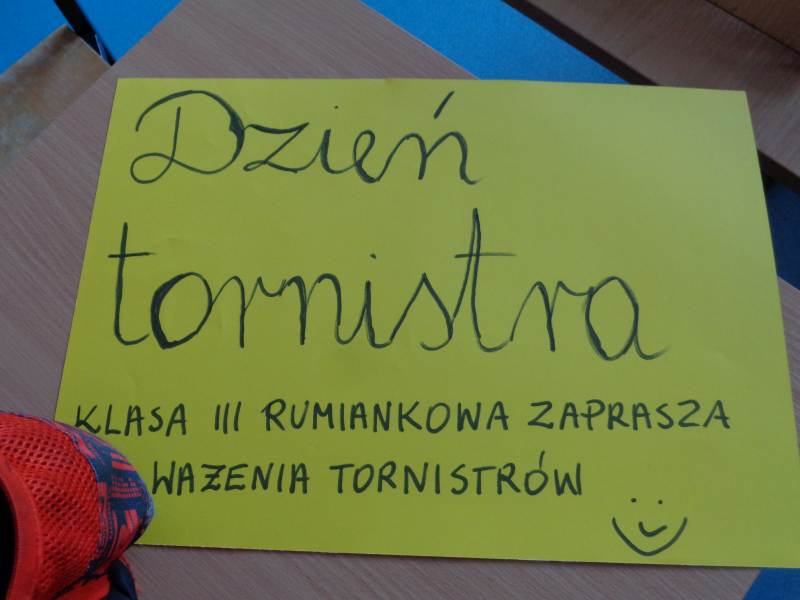 Dzień
tornistra
KLASA III RUMIANKOWA ZAPRASZA
WAZENIA TORNISTRÓW